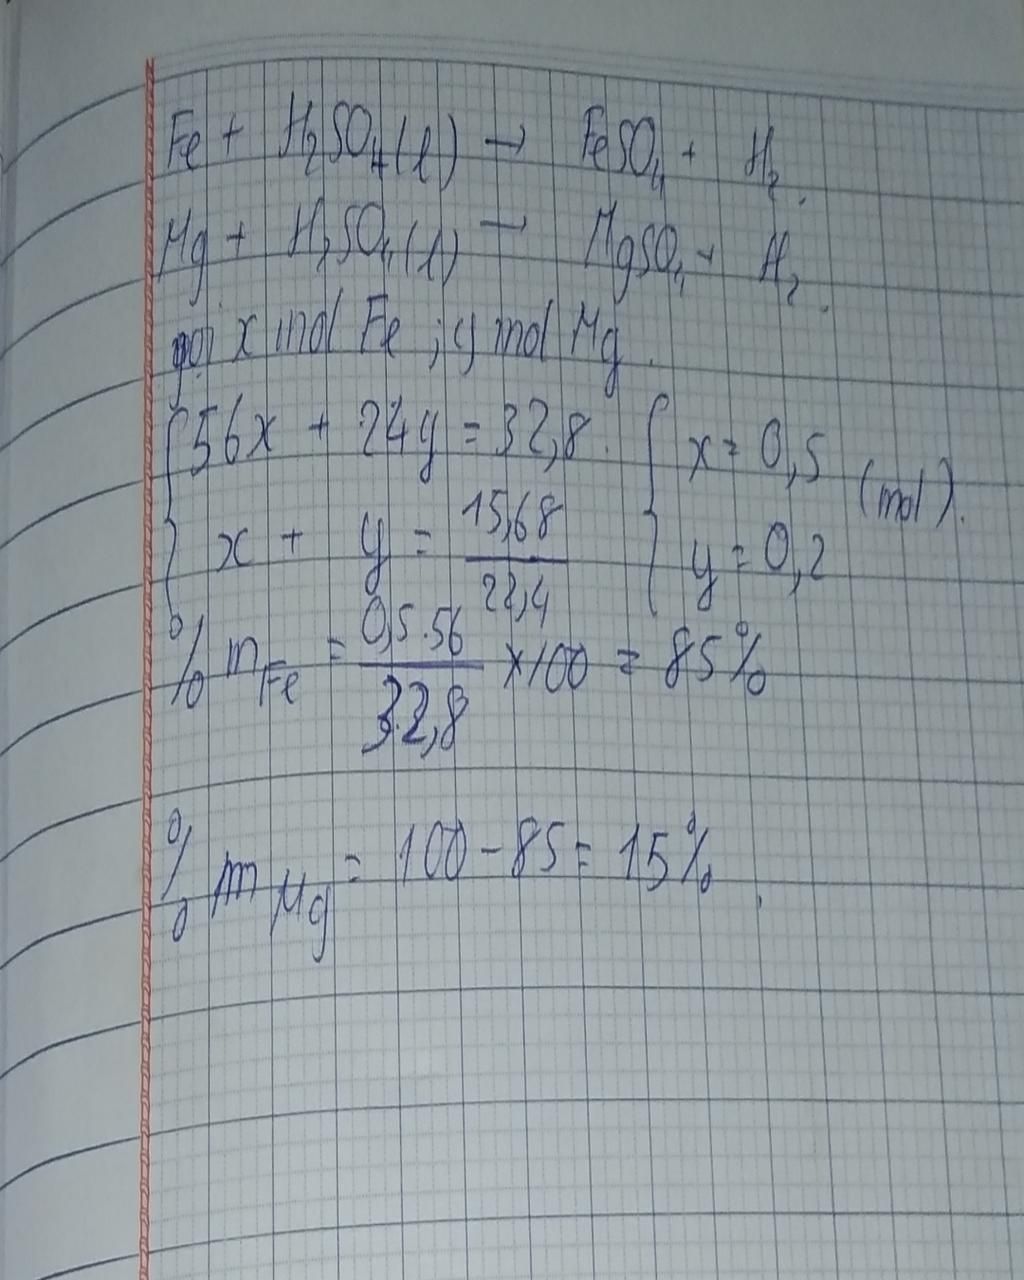 Fe + H₂SO₄(l) → FeSO₄ + H₂.
Mg + H₂SO₄(l) → MgSO₄ + H₂.
gọi x mol Fe ; y mol Mg.
{ 56x + 24y = 32,8. { x = 0,5
x + y = 15,68/22,4 y = 0,2 (mol).
% m Fe = 0,5.56/32,8 × 100 = 85%
% m Mg = 100 - 85 = 15%.